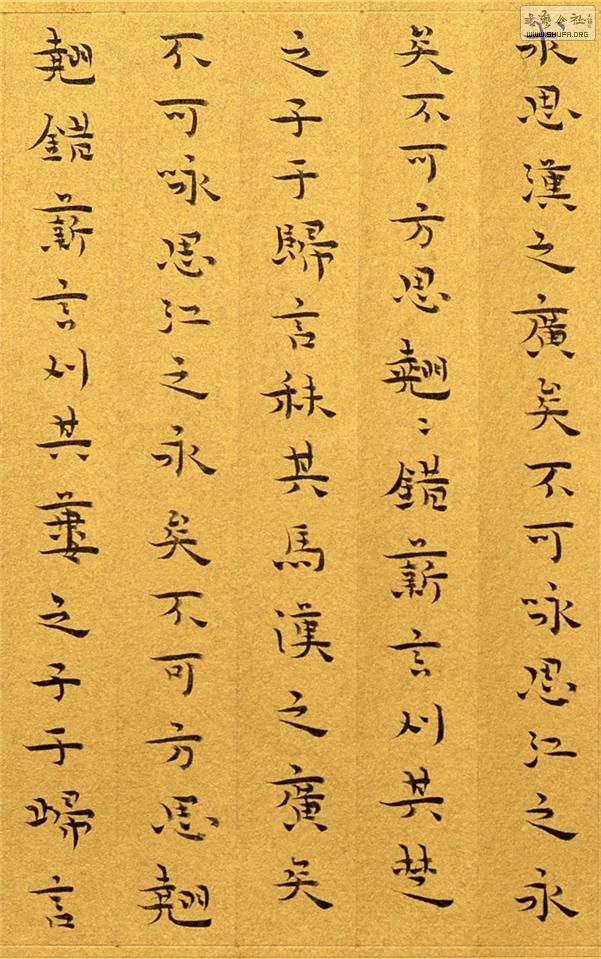 求思漢之廣矣不可咏思江之永
矣不可方思翹〻錯薪言刈其楚
之子于歸言秣其馬漢之廣矣
不可咏思江之永矣不可方思翹
翹錯薪言刈其蔞之子于歸言
WWW.SHUFA.ORG